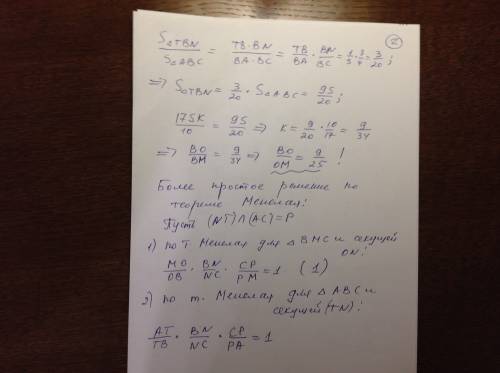 ②
S△TBN / S△ABC = TB·BN / BA·BC = TB/BA · BN/BC = 1/5 · 3/4 = 3/20;
=> S△TBN = 3/20 · S△ABC = 9S/20;
17SK/10 = 9S/20 => K = 9/20 · 10/17 = 9/34
=> BO/BM = 9/34 => BO/OM = 9/25 !
Более простое решение по
теореме Менелая:
Пусть (NT)∩(AC)=P
1) по т. Менелая для △BMC и секущей
ON:
MO/OB · BN/NC · CP/PM = 1 (1)
2) по т. Менелая для △ABC и
секущей (TN):
AT/TB · BN/NC · CP/PA = 1